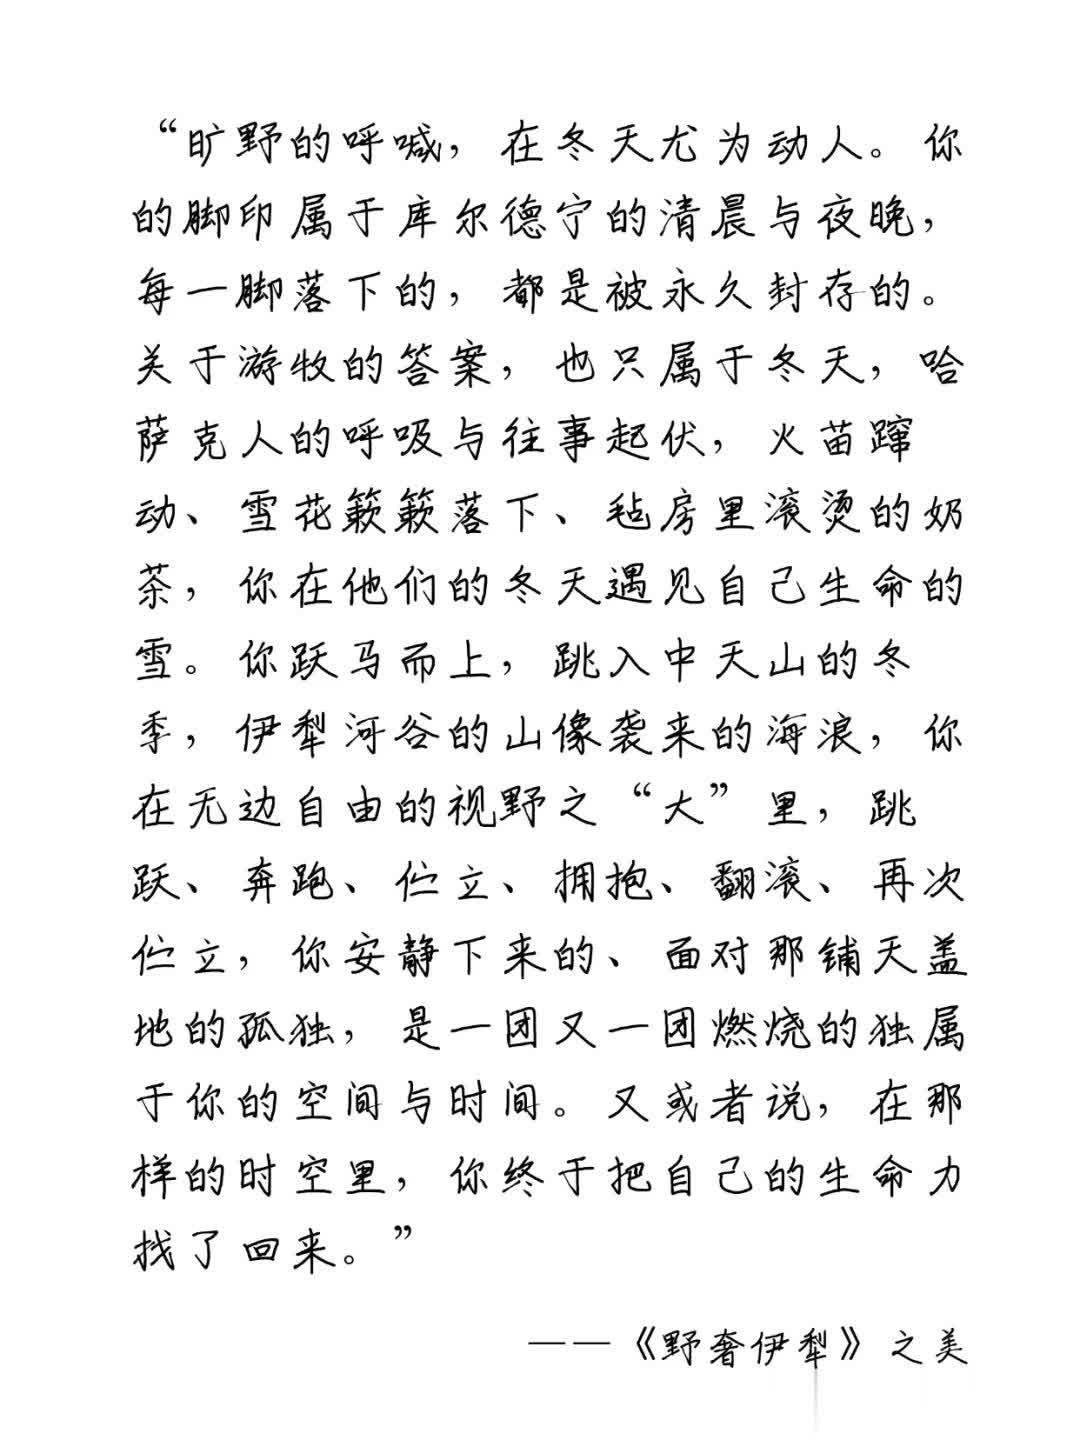 “旷野的呼喊，在冬天尤为动人。你
的脚印属于库尔德宁的清晨与夜晚，
每一脚落下的，都是被永久封存的。
关于游牧的答案，也只属于冬天，哈
萨克人的呼吸与往事起伏，火苗蹿
动、雪花簌簌落下、毡房里滚烫的奶
茶，你在他们的冬天遇见自己生命的
雪。你跃马而上，跳入中天山的冬
季，伊犁河谷的山像袭来的海浪，你
在无边自由的视野之“大”里，跳
跃、奔跑、伫立、拥抱、翻滚、再次
伫立，你安静下来的、面对那铺天盖
地的孤独，是一团又一团燃烧的独属
于你的空间与时间。又或者说，在那
样的时空里，你终于把自己的生命力
找了回来。”
——《野奢伊犁》之美